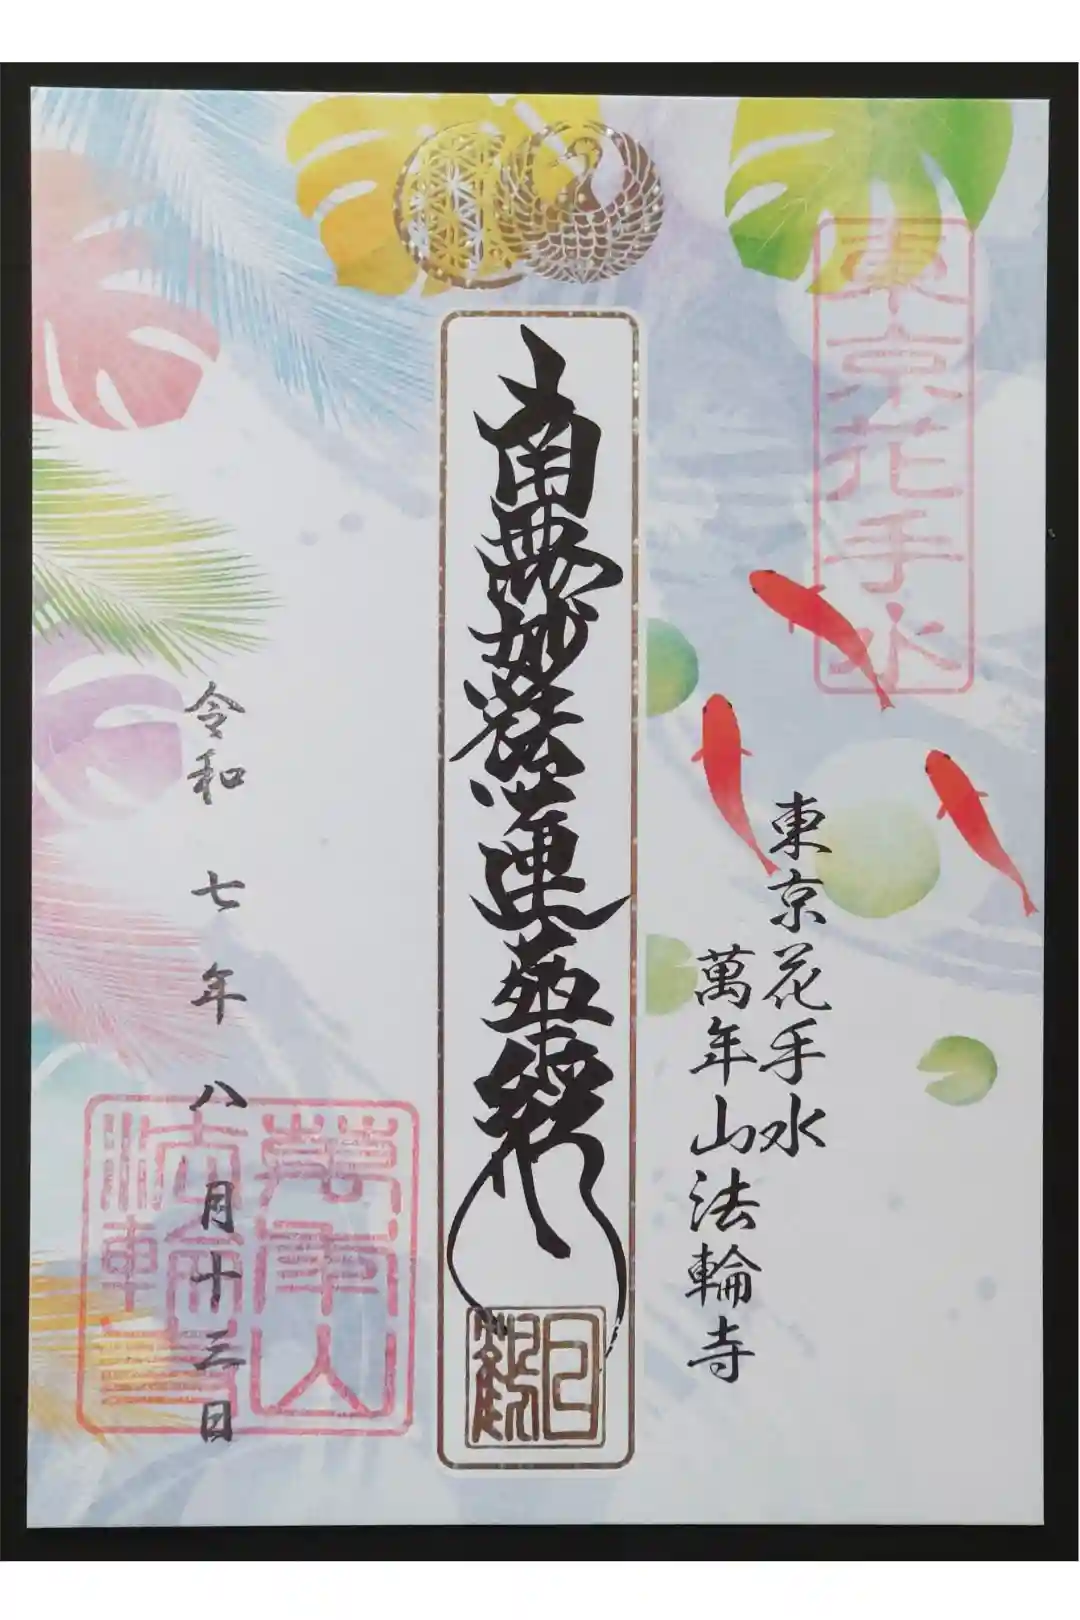 東京花手水
東京花手水
萬年山法輪寺
南無妙法蓮華経
日観
令和 七年 八月十三日
萬年山
法輪